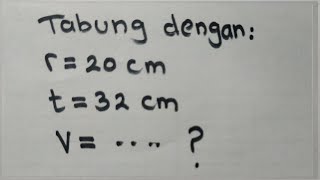 Tabung dengan:
r = 20 cm
t = 32 cm
V = .... ?